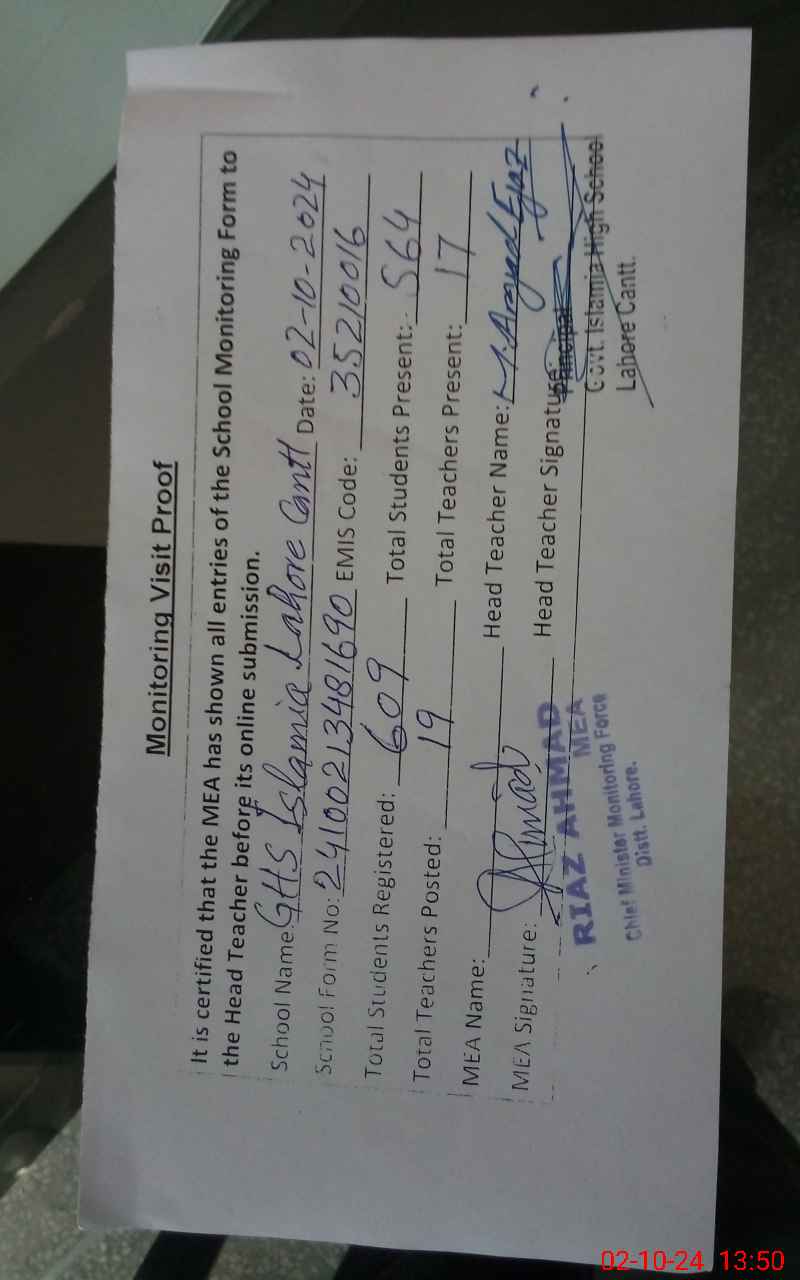 Monitoring Visit Proof
It is certified that the MEA has shown all entries of the School Monitoring Form to
the Head Teacher before its online submission.
School Name: GHS Islamia Lahore Cantt Date: 02-10-2024
School Form No: 24100213481690 EMIS Code: 35210016
Total Students Registered: 609 Total Students Present:- 564
Total Teachers Posted: 19 Total Teachers Present: 17
MEA Name: Head Teacher Name: M. Ejaz
MEA Signature: Head Teacher Signature
RIAZ AHMAD
MEA
Chief Minister Monitoring Force
Distt. Lahore.
Principal
Govt. Islamia High School
Lahore Cantt.
02-10-24 13:50